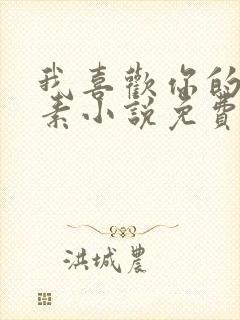 我喜歡你的
素小說免費
洪城農